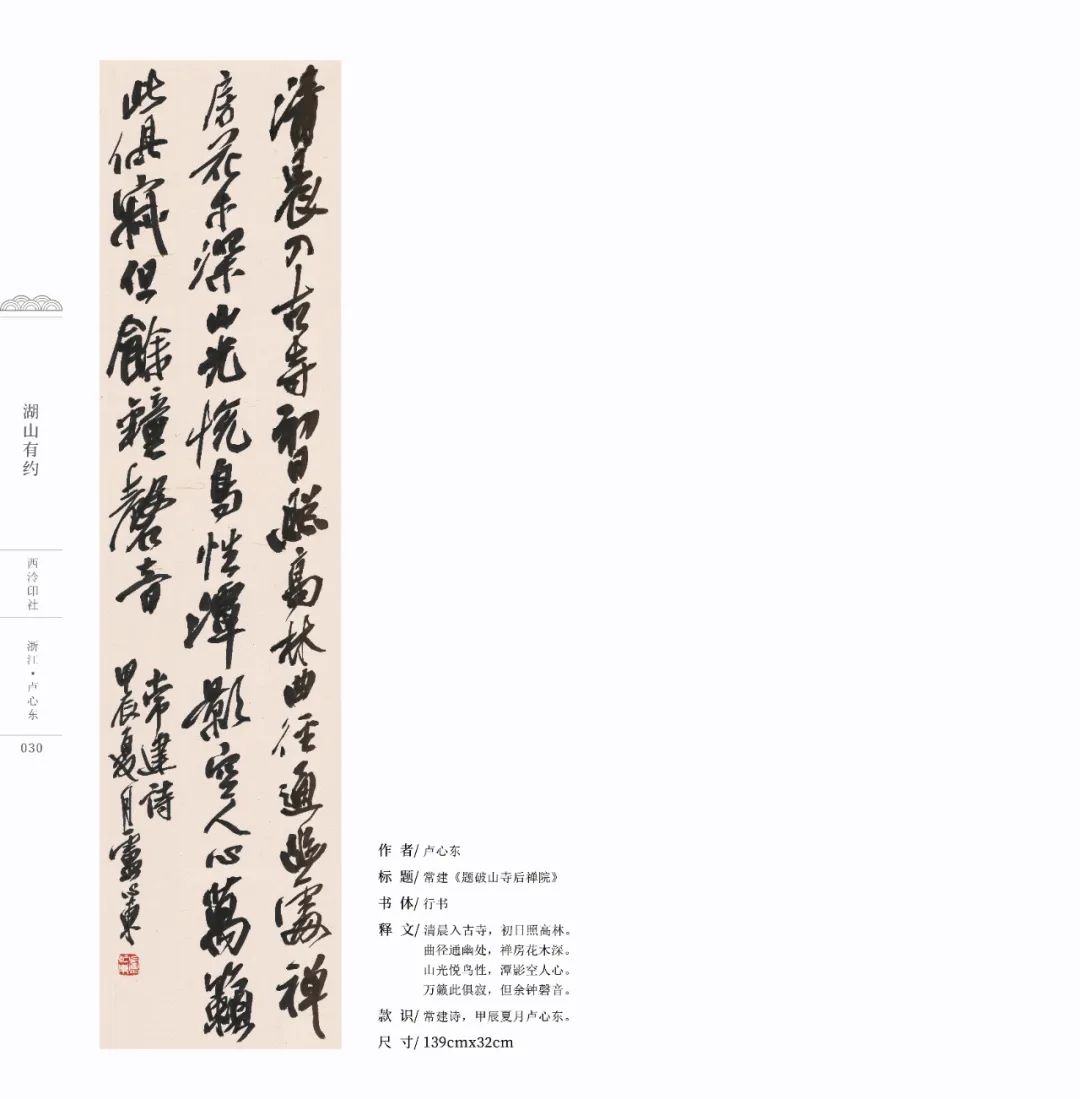 清晨入古寺初日照高林曲徑通幽處禅
房花木深山光悦鳥性潭影空人心萬籟
此俱寂但餘鐘磬音
常建詩
甲辰夏月盧心東
湖山有约
西泠印社
浙江·卢心东
030
作 者/ 卢心东
标 题/ 常建《题破山寺后禅院》
书 体/ 行书
释 文/ 清晨入古寺，初日照高林。
曲径通幽处，禅房花木深。
山光悦鸟性，潭影空人心。
万籁此俱寂，但余钟磬音。
款 识/ 常建诗，甲辰夏月卢心东。
尺 寸/ 139cmx32cm